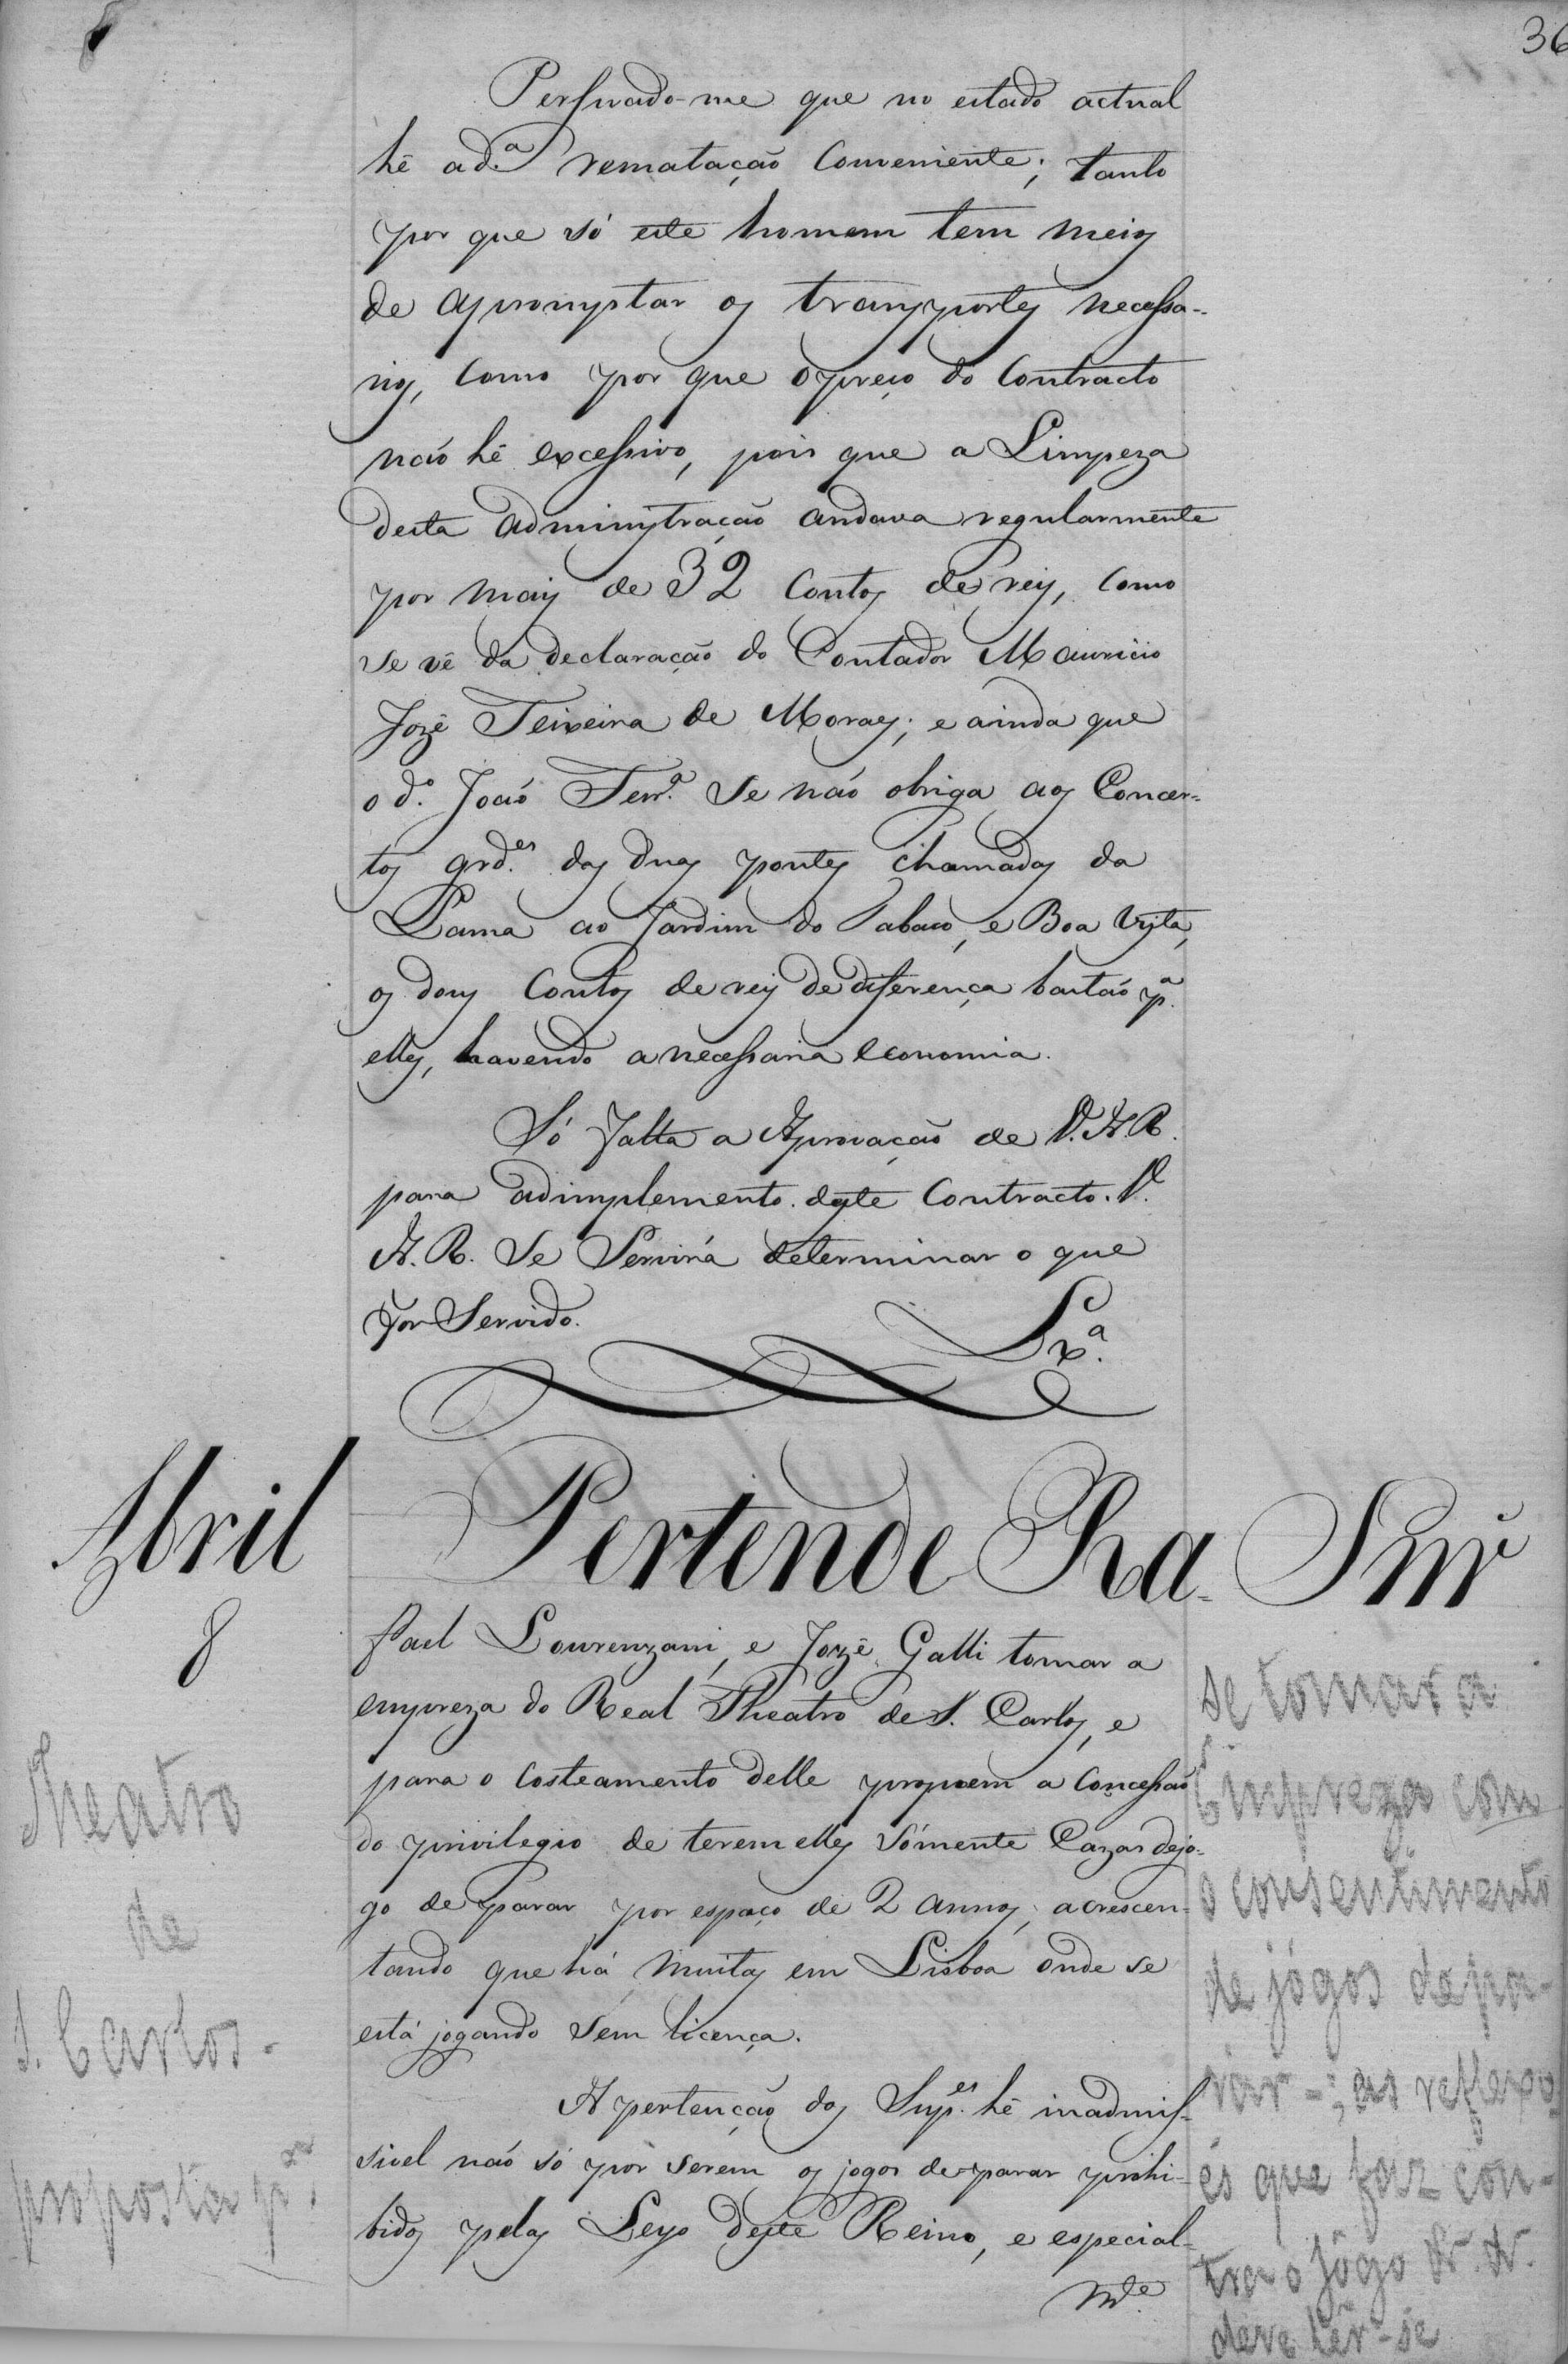 36
Persuado-me que no estado actual
hê ad.ª rematação Conveniente; tanto
por que só este homem tem meios
de apromptar os transportes necessa-
rios, como por que o preço do Contracto
naó hê excessivo, pois que a Limpeza
desta administração andava regularmente
por mais de 32 Contos de reis, como
se vê da declaração do Contador Mauricio
Jozê Teixeira de Moraes; e ainda que
o d.º Joaó Ferr.ª se naó obriga aos Concer-
tos grd.es das duas pontes chamadas da
Lama ao Jardim do Tabaco, e Boa Vista,
os dous Contos de reis de diferença bastaó p.ª
elles, havendo a necessaria economia.
Só falta a Aprovação de V. A. R.
para adimplemento deste Contracto. V.
A. R. Se Servirá determinar o que
for Servido.
Lx.ª
Abril
8
Pertende Ra-
fael Lourenzani, e Jozê Galli tomar a
empreza do Real Theatro de S. Carlos, e
para o Costeamento delle propoem a Concessaó
do privilegio de terem elles sómente Cazas de jo-
go de parar por espaço de 2 annos, acrescen-
tando que há muitas em Lisboa onde se
está jogando sem licença.
A pertenção dos Sup.es hê inadmis-
sivel naó só por serem os jogos de parar prohi-
bidos pelas Leys deste Reino, e especial-
m.te
Theatro
de
S. Carlos-
proposta p.ª
Snr
se tomar a
Empreza com
o consentimento
de jógos de pa-
rar-; as reflexo-
ẽs que faz con-
tra o jôgo &. &.
deve lêr-se